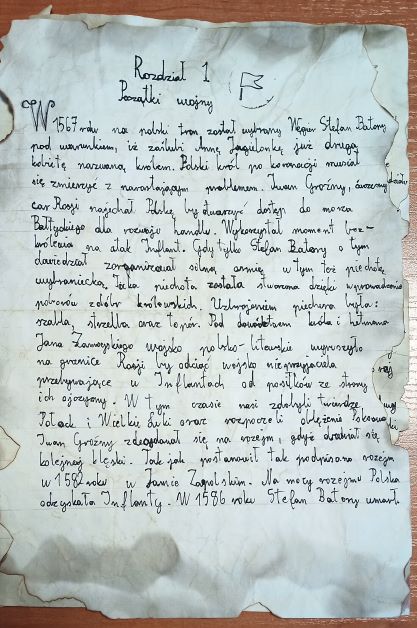 Rozdział 1
Początki wojny
W 1567 roku na polski tron został wybrany Węgier Stefan Batory
pod warunkiem, iż zaślubi Annę Jagielonkę już drugą
kobietę nazwaną królem. Polski król po koronacji musiał
się zmierzyć z narastającym problemem. Iwan Groźny, ówczesny
car Rosji najechał Polskę by otworzyć dostęp do morza
Bałtyckiego dla rozwoju handlu. Wykorzystał moment bez-
królewia na atak Inflant. Gdy tylko Stefan Batory o tym
dowiedział zorganizował silną armię w tym też piechotę
wybraniecką. Taka piechota została stworzona dzięki wprowadzeniu
poborów z dóbr królewskich. Uzbrojeniem piechura była:
szabla, strzelba oraz topór. Pod dowództwem króla i hetmana
Jana Zamoyskiego wojsko polsko-litewskie wyruszyło
na granice Rosji by odciąć wojsko nieprzyjaciela
przebywające w Inflantach od posiłków ze strony
ich ojczyzny. W tym czasie nasi zdobyli twierdzę
Połock i Wielkie Łuki oraz rozpoczęli oblężenie Pskowa.
Iwan Groźny zdecydował się na rozejm, gdyż obawiał się
kolejnej klęski. Tak jak postanowił tak podpisano rozejm
w 1582 roku w Jamie Zapolskim. Na mocy rozejmu Polska
odzyskała Inflanty. W 1586 roku Stefan Batory umarł.